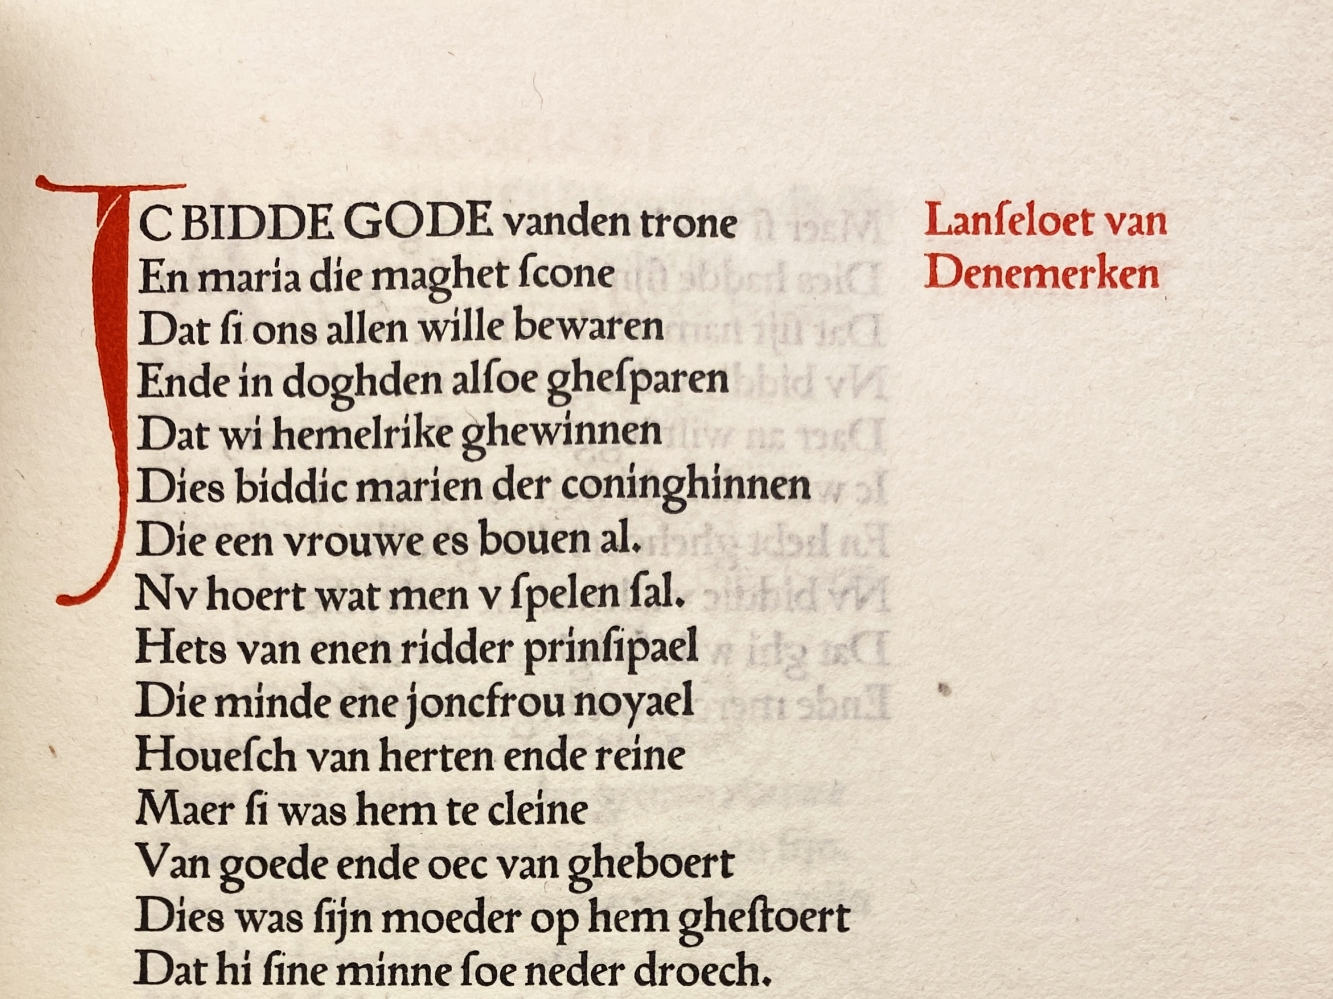 JC BIDDE GODE vanden trone
En maria die maghet ſcone
Dat ſi ons allen wille bewaren
Ende in doghden alſoe gheſparen
Dat wi hemelrike ghewinnen
Dies biddic marien der coninghinnen
Die een vrouwe es bouen al.
Nv hoert wat men v ſpelen ſal.
Hets van enen ridder prinſipael
Die minde ene joncfrou noyael
Houeſch van herten ende reine
Maer ſi was hem te cleine
Van goede ende oec van gheboert
Dies was ſijn moeder op hem gheſtoert
Dat hi ſine minne ſoe neder droech.
Lanſeloet van
Denemerken